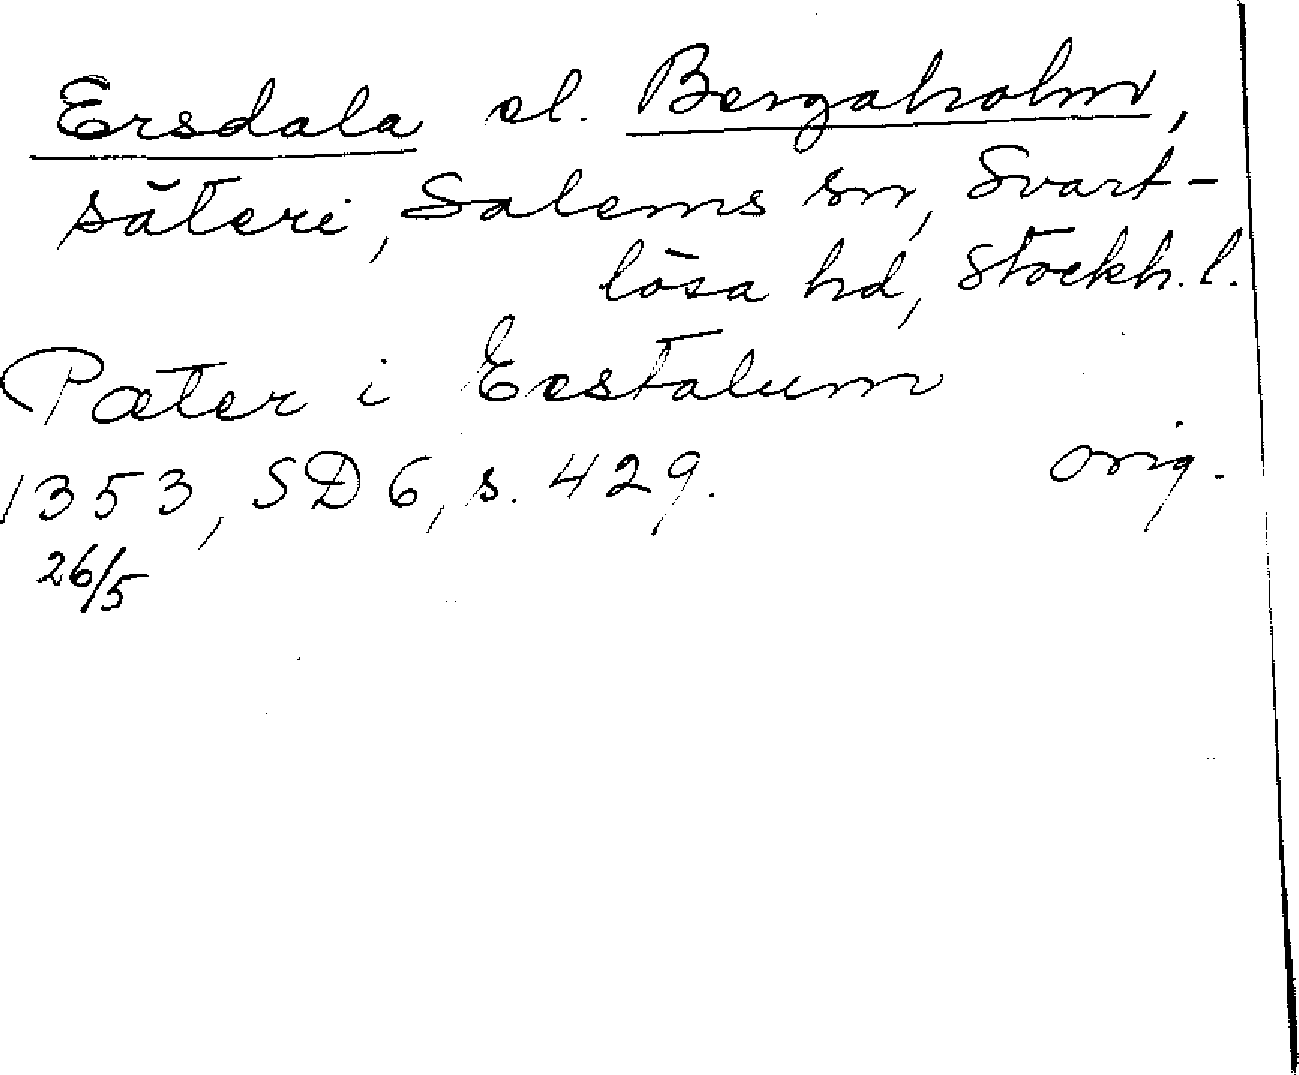 Ersdala el. Bergaholm,
säteri, Salems sn, Svart-
lösa hd, Stockh. l.
Pæter i Eestalum
1353, SD 6, s. 429. orig.
26/5